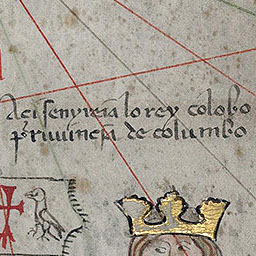 Açi senyreia lo rey colobo
priuincia de columbo